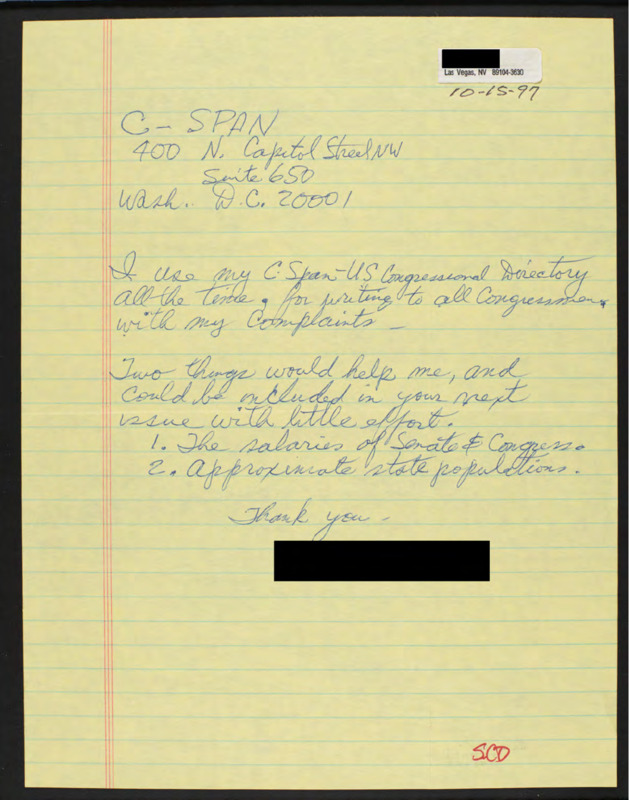 Las Vegas, NV 89104-3630
10-15-97
C-SPAN
400 N. Capitol Street NW
Suite 650
Wash.. D.C. 20001
I use my C-Span-US Congressional Directory
all the time, for writing to all Congressmen,
with my complaints -
Two things would help me, and
could be included in your next
issue with little effort.
1. The salaries of Senate & Congress.
2. Approximate state populations.
Thank you -
SCD